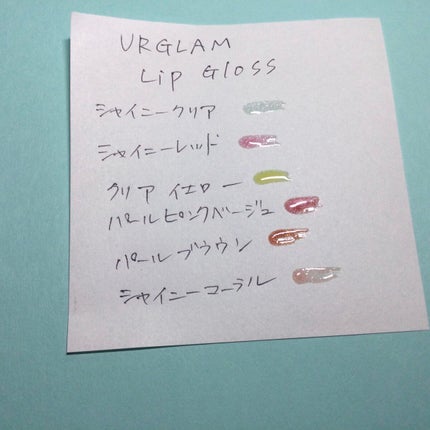 URGLAM
Lip Gloss
シャイニークリア
シャイニーレッド
クリアイエロー
パールピンクベージュ
パールブラウン
シャイニーコーラル